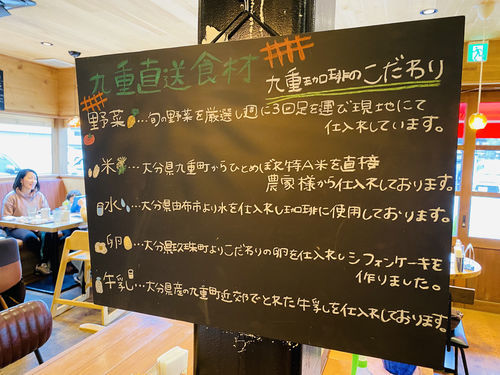 九重直送食材
九重珈琲のこだわり
野菜…旬の野菜を厳選し週に3回足を運び現地にて
仕入れしています。
米…大分県九重町からひとめぼれ特A米を直接
農家様から仕入れしております。
水…大分県由布市より水を仕入れし珈琲に使用しております。
卵…大分県玖珠町よりこだわりの卵を仕入れしシフォンケーキを
作りました。
牛乳…大分県産の九重町近郊でとれた牛乳を仕入れしております。